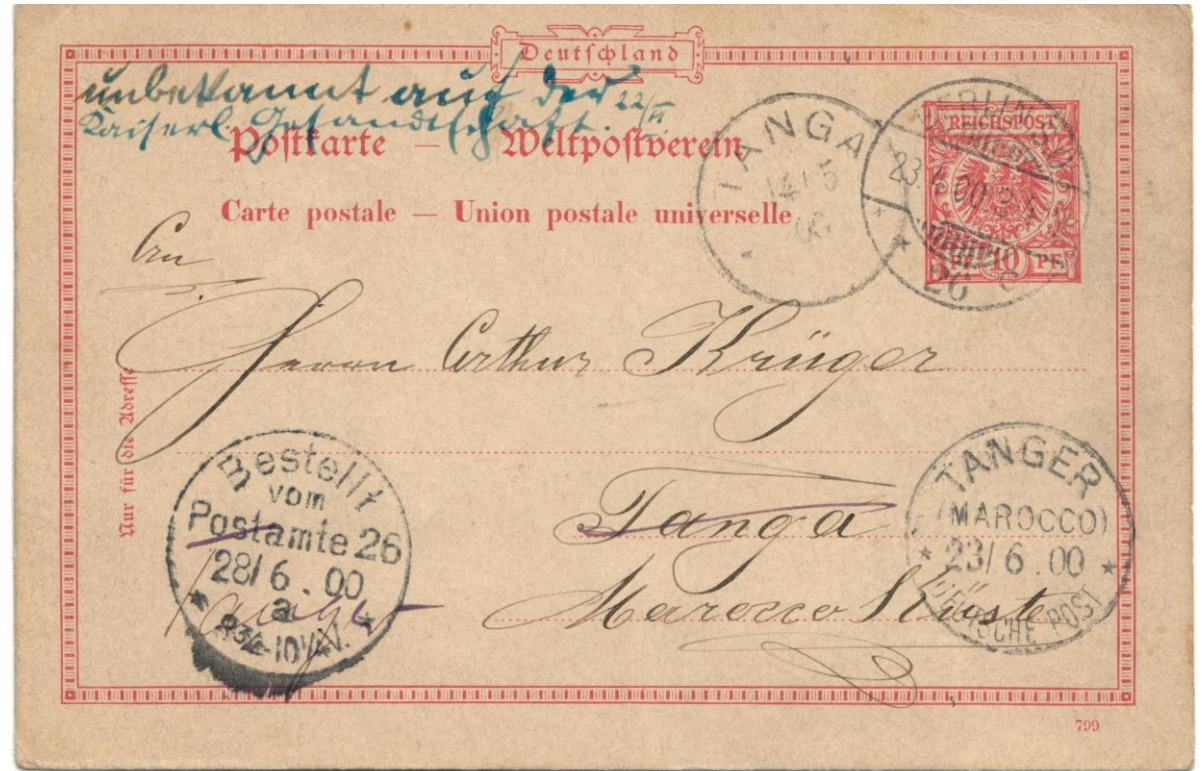 Deutschland
unbekannt auf der 22/VI
Kaiserl. Gesandtschaft.
Postkarte — Weltpostverein
Carte postale — Union postale universelle
TANGA
14/5
00
BERLIN
23.4.00
REICHSPOST
10 PF
An
Herrn Arthur Krüger
Tanga
Marocco Küste
Nur für die Adresse
Bestellt
vom
Postamte 26
28/6.00
a
V.
TANGER
(MAROCCO)
23/6.00
DEUTSCHE POST
799